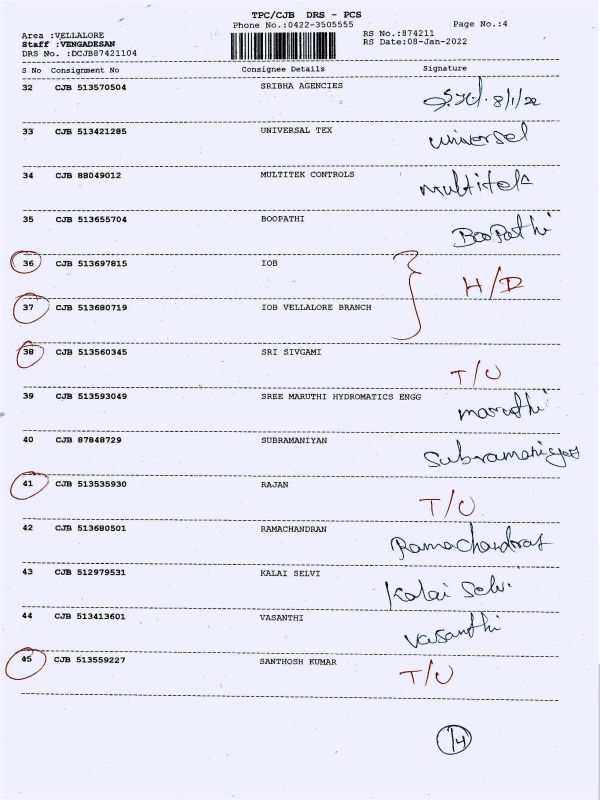 TPC/CJB DRS - PCS
Phone No.:0422-3505555 Page No.:4
Area :VELLALORE RS No.:874211
Staff :VENGADESAN RS Date:08-Jan-2022
DRS No. :DCJB87421104
S No Consignment No Consignee Details Signature
32 CJB 513570504 SRIBHA AGENCIES 8/1/22
33 CJB 513421285 UNIVERSAL TEX universel
34 CJB 88049012 MULTITEK CONTROLS multitek
35 CJB 513655704 BOOPATHI BooPathi
36 CJB 513697815 IOB H/D
37 CJB 513680719 IOB VELLALORE BRANCH
38 CJB 513560345 SRI SIVGAMI T/U
39 CJB 513593049 SREE MARUTHI HYDROMATICS ENGG maruthi
40 CJB 87848729 SUBRAMANIYAN Subramaniyan
41 CJB 513535930 RAJAN T/U
42 CJB 513680501 RAMACHANDRAN Ramachandran
43 CJB 512979531 KALAI SELVI Kalai Selvi
44 CJB 513413601 VASANTHI vasanthi
45 CJB 513559227 SANTHOSH KUMAR T/U
14